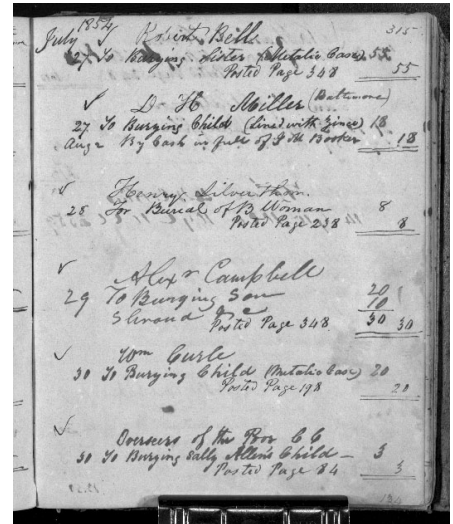 July 1854 Robert Bells 315
27 To Burying Sister (Metalic Case) 55
Posted Page 348 55
D. H. Miller (Baltimore)
27 To Burying Child (Lined with Zinc) 18
Aug 2 By Cash in full of J M Booker 18
Henry Silverthorn
28 For Burial of B. Woman 8
Posted Page 238 8
Alexr Campbell
29 To Burying Son 20
Shroud &c 10
Posted Page 348 30 30
Wm Curle
30 To Burying Child (Metalic Case) 20
Posted Page 198 20
Overseers of the Poor C C
30 To Burying Sally Allens Child 3
Posted Page 84 3